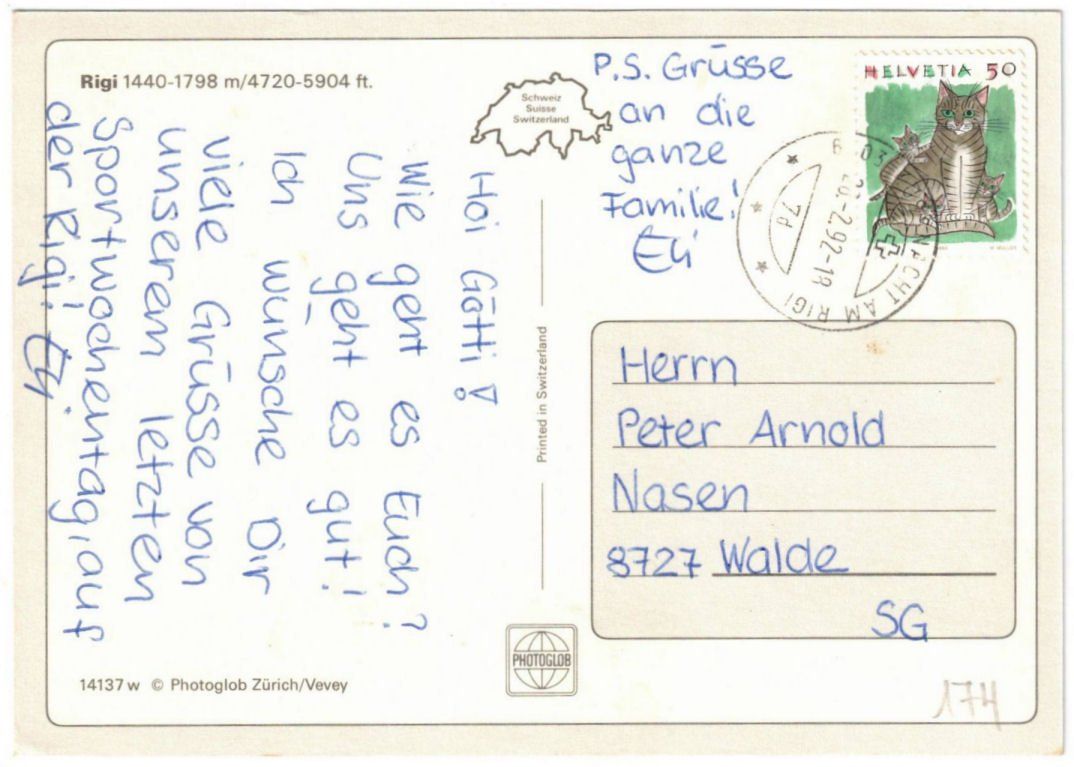 Rigi 1440-1798 m/4720-5904 ft.
Hoi Götti!
Wie geht es Euch?
Uns geht es gut!
Ich wünsche Dir
viele Grüsse von
unserem letzten
Sportwochentag, auf
der Rigi!
Schweiz
Suisse
Switzerland
P.S. Grüsse
an die
ganze
Familie!
HELVETIA 50
7d
-2.92-18
AM RIGI
Printed in Switzerland
Herrn
Peter Arnold
Nasen
8727 Walde
SG
PHOTOGLOB
14137 w © Photoglob Zürich/Vevey
174